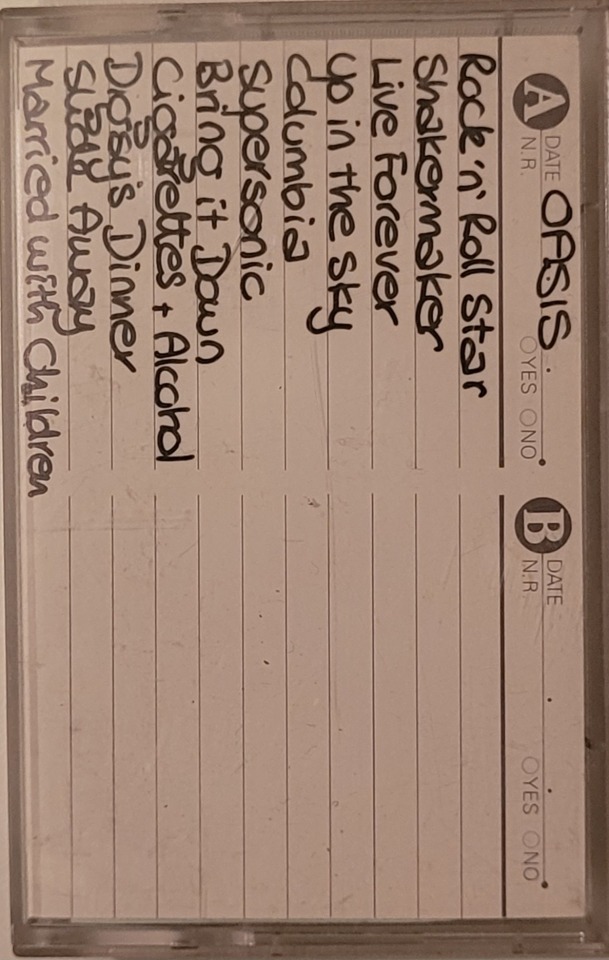 A DATE OASIS
N.R. YES NO
Rock 'n' Roll Star
Shakermaker
Live Forever
Up in the Sky
Columbia
Supersonic
Bring it Down
Cigarettes + Alcohol
Digsy's Dinner
Slide Away
Married with Children
B DATE
N.R YES NO